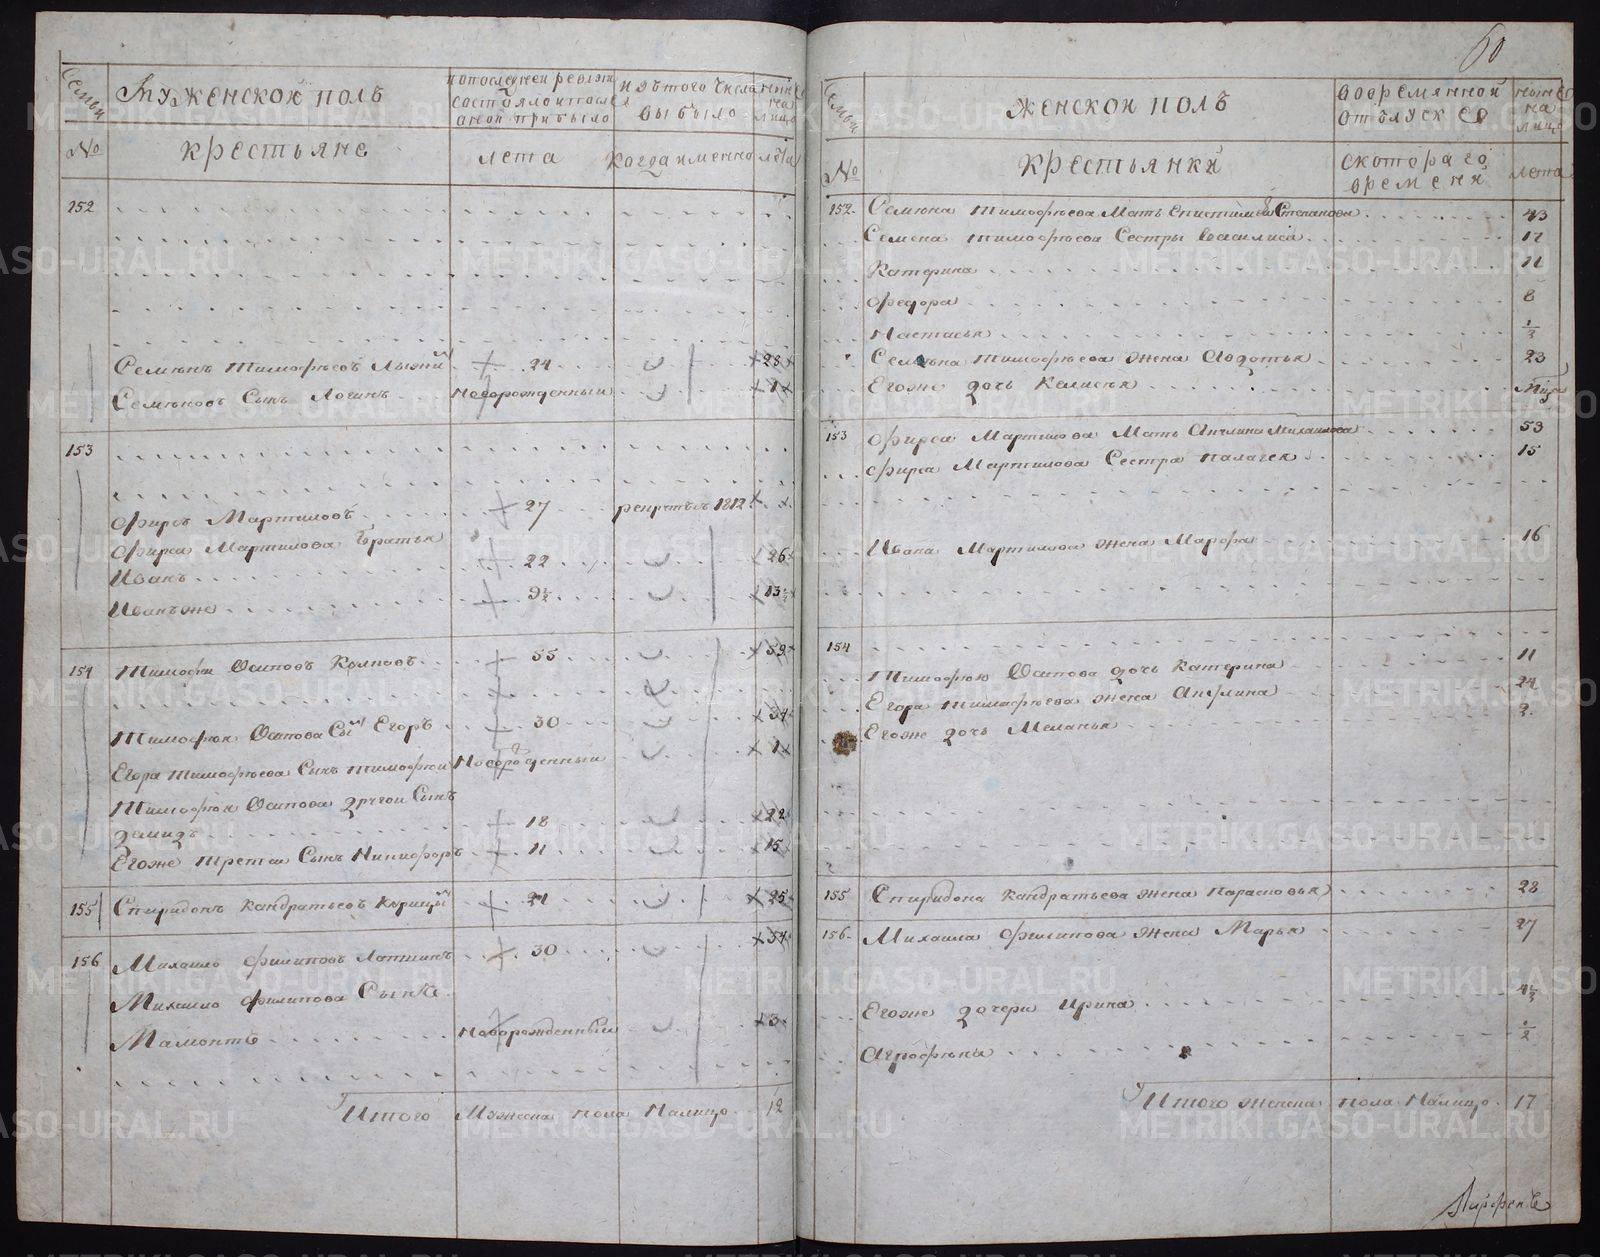 60
Семьи
Мужеской полъ
Крестьяне
По последней ревизи состояло и после оной прибыло
лета
Изътого числа выбыло
когда именно
ныне на лицо
лета
№
152
Семенъ Тимофеевъ
24
28
Семеновъ Сынъ Логинъ
Новорожденный
1
153
Фирсъ Мартиновъ
27
рекрутъ 1812
Фирса Мартинова Братья
Иванъ
22
26
Иванъ же
9½
13½
154
Тимофей Осиповъ
55
59
Тимофея Осипова Сынъ Егоръ
30
34
Егора Тимофеева Сынъ Тимофей
Новорожденный
1
Тимофея Осипова другой Сынъ
Демидъ
18
22
Егоже третей Сынъ Никифоръ
11
15
155
Спиридонъ Кандратьевъ
21
25
156
Михаило Филиповъ Лаптинъ
30
34
Михаило Филипова Сынъ
Мамонтъ
Новорожденный
3
Итого Мужеска пола Налицо
12
Семьи
Женской полъ
Крестьянки
вовременной отълучке
скотораго времени
ныне на лицо
лета
№
152
Семена Тимофеева Мать Степанова
43
Семена Тимофеева Сестры Василиса
17
Катерина
11
Федора
8
Настасья
½
Семена Тимофеева жена Авдотья
23
Егоже дочь
153
Фирса Мартинова Мать Михайлова
53
Фирса Мартинова Сестра Палагея
15
Ивана Мартинова жена Марфа
16
154
Тимофея Осипова дочь Катерина
11
Егора Тимофеева жена Акулина
24
Егоже дочь Меланья
2
155
Спиридона Кандратьева жена Парасковья
28
156
Михаила Филипова жена Марья
27
Егоже дочери Ирина
4½
Агрофена
½
Итого женска пола Налицо
17
METRIKI.GASO-URAL.RU